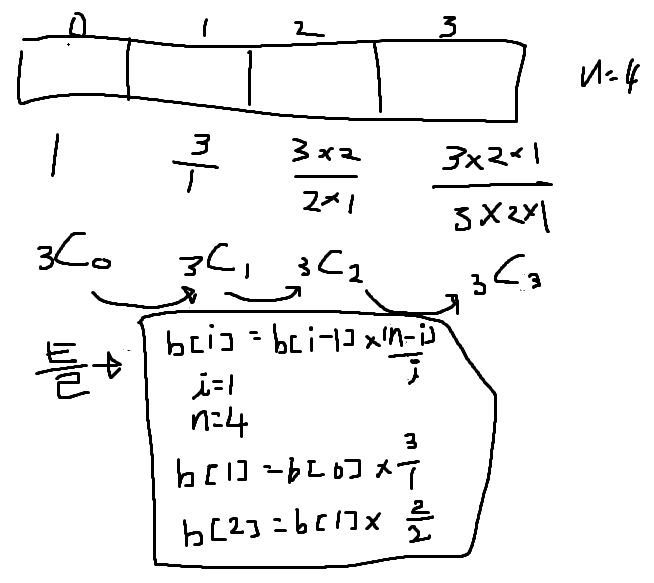 0 1 2 3
n=4
1 3/1 3×2/2×1 3×2×1/3×2×1
₃C₀ ₃C₁ ₃C₂ ₃C₃
b[i] = b[i-1] × (n-i)/i
i=1
n=4
b[1] = b[0] × 3/1
b[2] = b[1] × 2/2